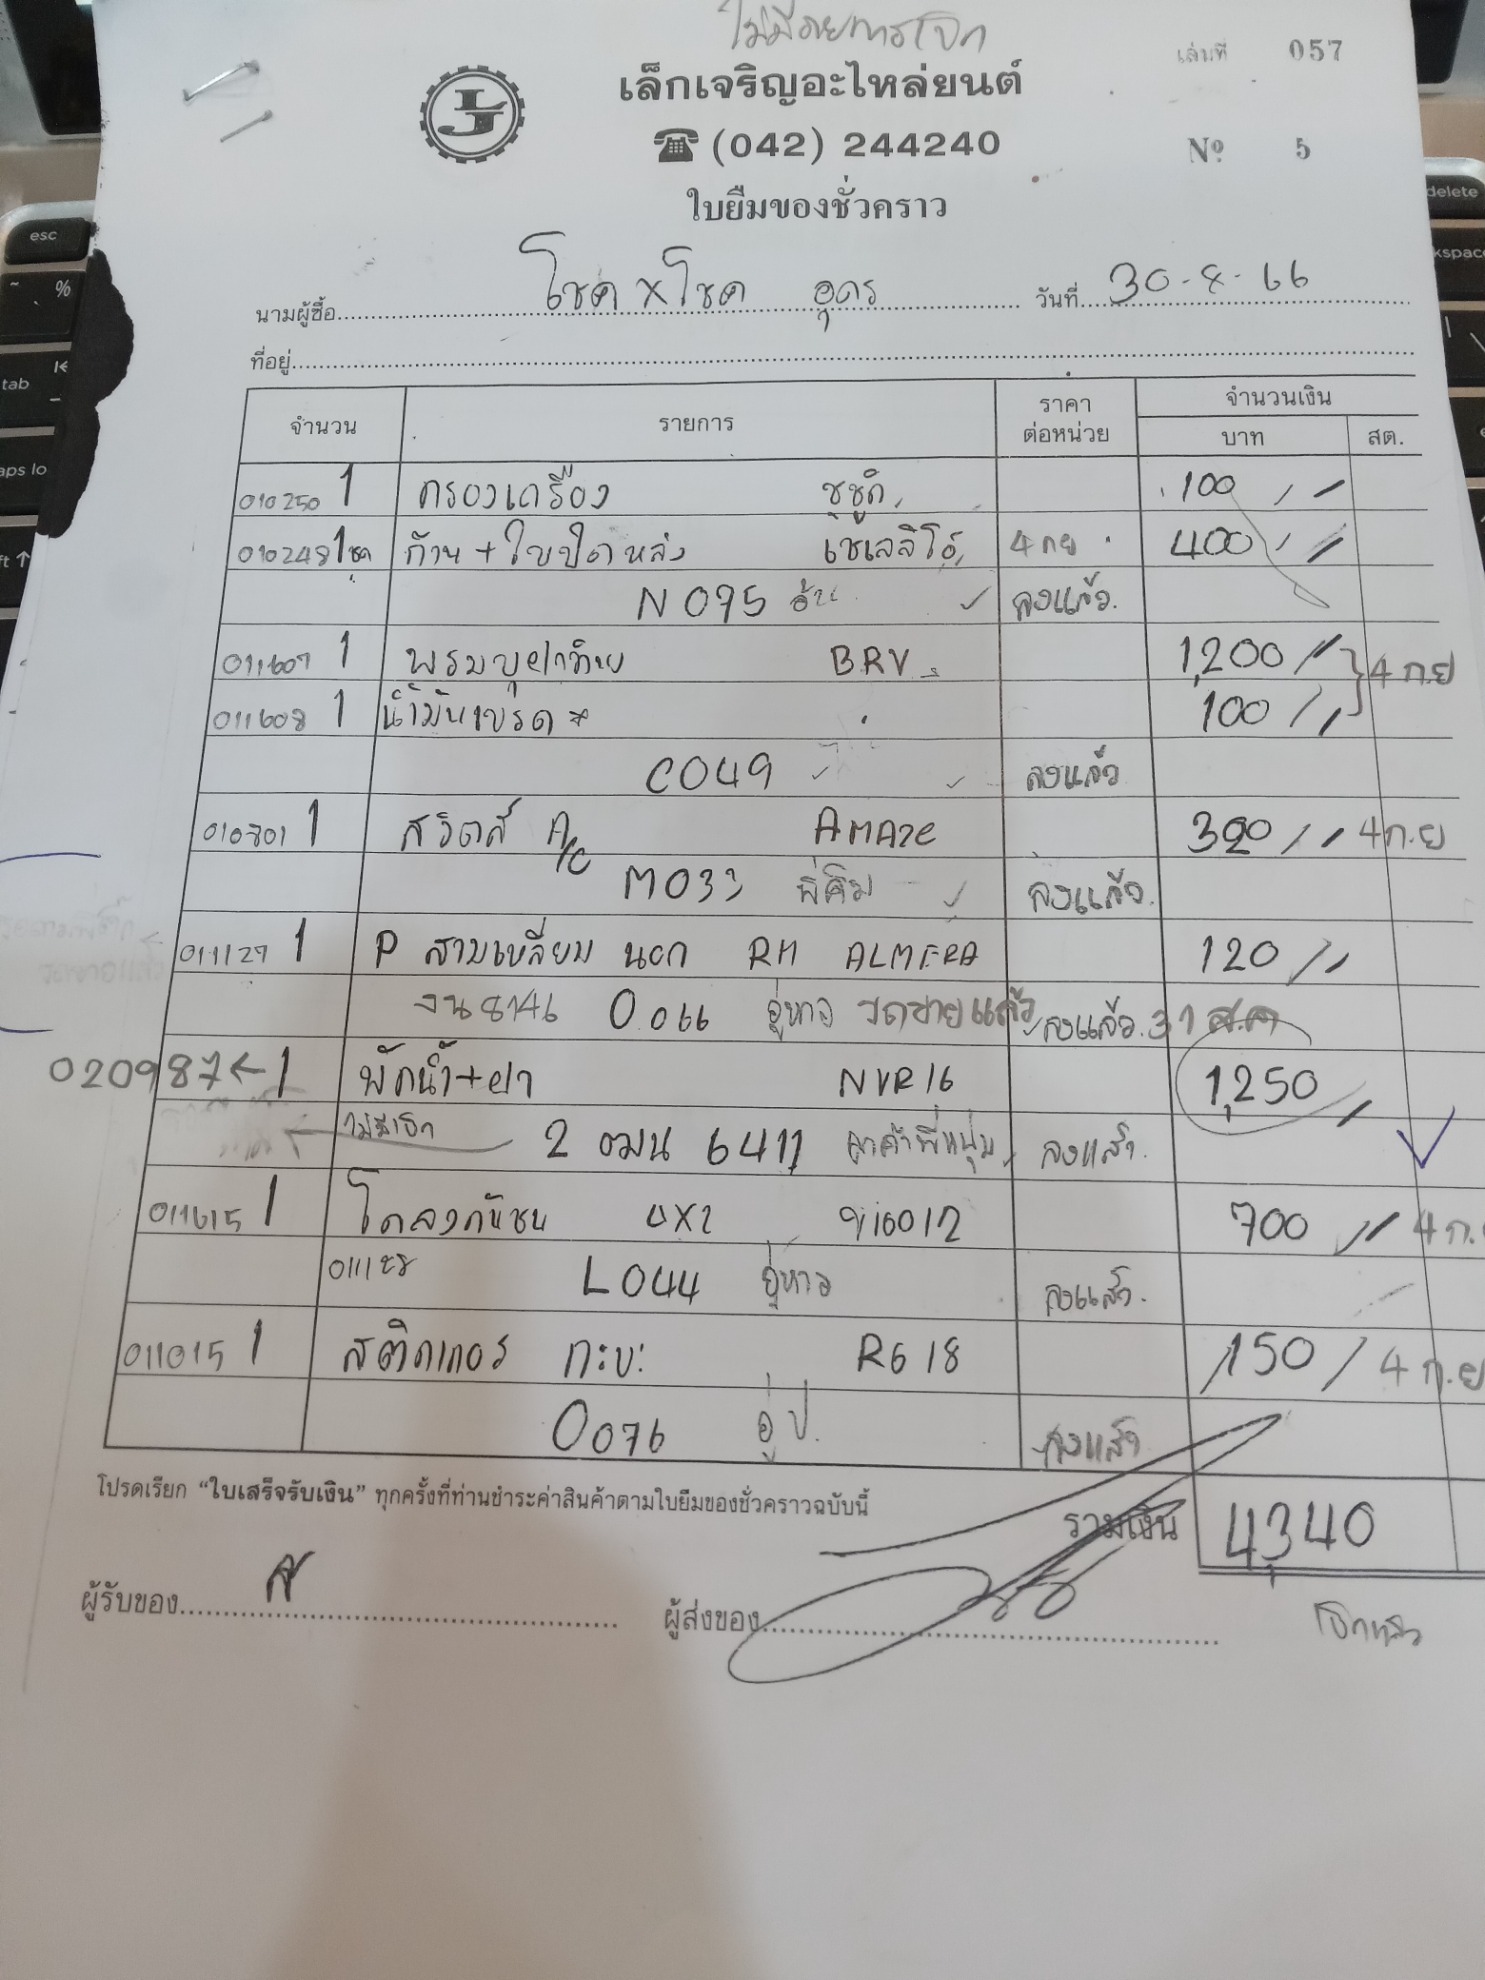 ไม่มีรายการเบิก
เล่มที่ 057
เล็กเจริญอะไหล่ยนต์
☎ (042) 244240
Nº 5
ใบยืมของชั่วคราว
นามผู้ซื้อ โชค x โชค อุดร วันที่ 30-8-66
ที่อยู่
จำนวน รายการ ราคาต่อหน่วย จำนวนเงิน
บาท สต.
010250 1 กรองเครื่อง ซูซูกิ 100
010248 1 ชุด ก้าน+ใบปัดหลัง เซเลลิโอ้ 4 กย 400
N 095 อ้น ลงแล้ว
011607 1 BRV 1,200 4 ก.ย
011608 1 น้ำมันเบรค 100
C049 ลงแล้ว
010801 1 สวิตส์ A/C AMAZE 320 4 ก.ย
M033 พี่คิม ลงแล้ว
011127 1 P สามเหลี่ยม นอก RH ALMERA 120
งน 8146 O066 อู่หาว รถขายแล้ว ลงแล้ว 31 ส.ค
020987 ← 1 พักน้ำ+ฝา NVR16 1,250
ไม่มีเบิก 2 ฒน 6411 ลูกค้าพี่หนุ่ม ลงแล้ว
011615 1 โครงกันชน 700 4 ก.
L044 อู่หาว ลงแล้ว
011015 1 สติกเกอร์ กะบะ R618 150 4 ก.ย
O076 อู่ ป. ลงแล้ว
โปรดเรียก "ใบเสร็จรับเงิน" ทุกครั้งที่ท่านชำระค่าสินค้าตามใบยืมของชั่วคราวฉบับนี้
รวมเงิน 4,340
ผู้รับของ ผู้ส่งของ
เบิกแล้ว